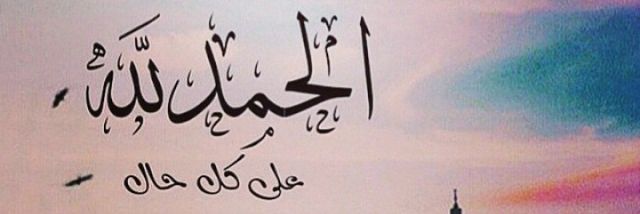 الحمدلله
على كل حال